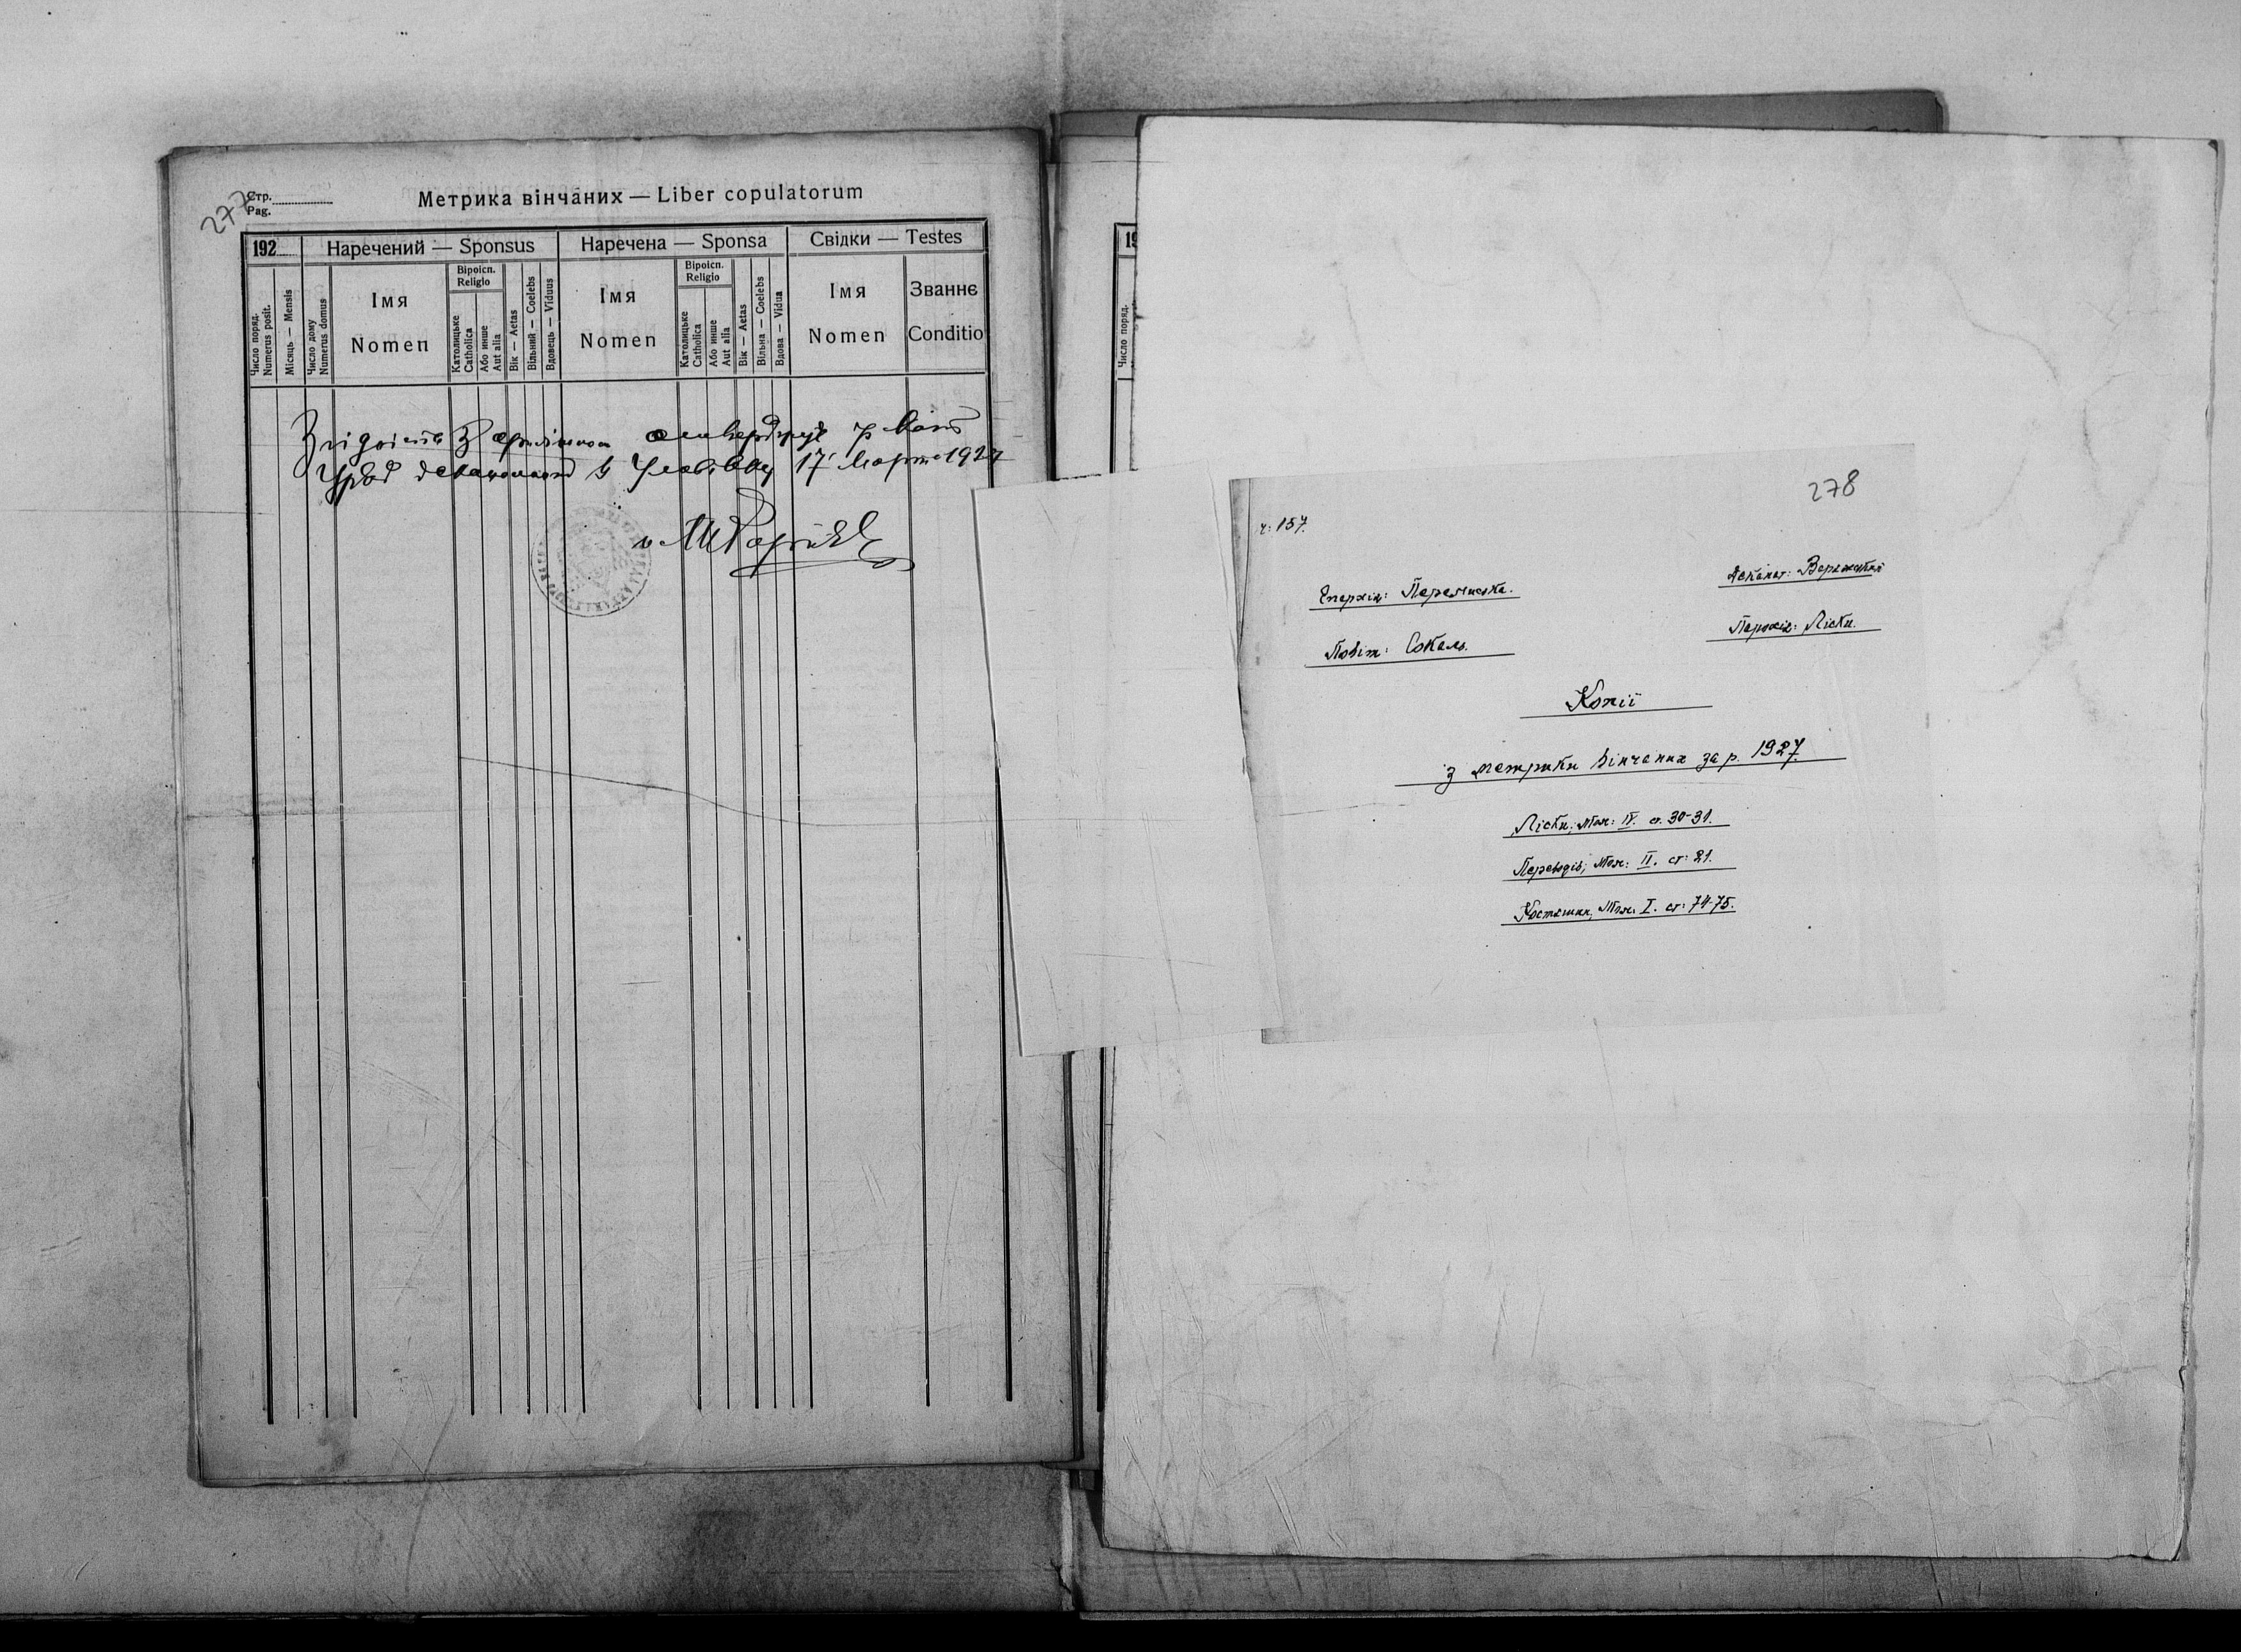 277
Стр.
Pag.
Метрика вінчаних — Liber copulatorum
192
Наречений — Sponsus
Наречена — Sponsa
Свідки — Testes
Число поряд.
Numerus posit.
Місяць — Mensis
Число дому
Numerus domus
Імя
Nomen
Віроісп.
Religio
Католицьке
Catholica
Або инше
Aut alia
Вік — Aetas
Вільний — Coelebs
Вдовець — Viduus
Імя
Nomen
Віроісп.
Religio
Католицьке
Catholica
Або инше
Aut alia
Вік — Aetas
Вільна — Coelebs
Вдова — Vidua
Імя
Nomen
Званнє
Conditio
Згідність з
Уряд 17 Марта 1927
19
Число поряд.
278
ч: 157.
Епархія: Перемиска.
Деканат:
Повіт: Сокаль.
Парохія: Ліски.
Копії
з метрики вінчаних за р. 1927.
Ліски; Том: IV. ст. 30-31.
Переводів; Том: II. ст: 21.
Том: I. ст: 74-75.